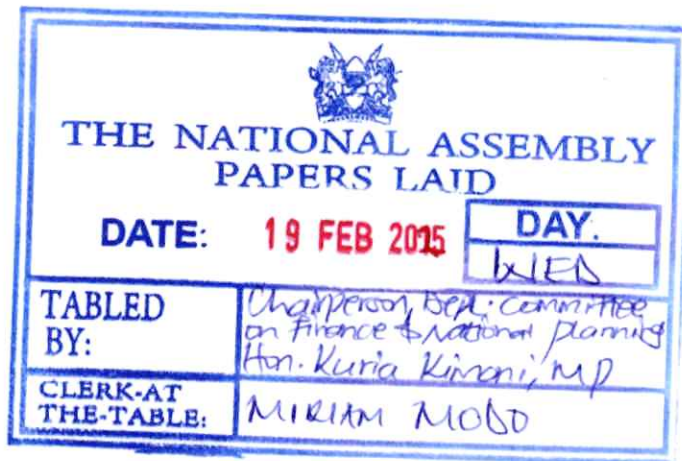 THE NATIONAL ASSEMBLY
PAPERS LAID
DATE: 19 FEB 2025
DAY.
WED
TABLED
BY:
Chairperson, Dept. Committee
on Finance & National planning
Hon. Kuria Kimani, MP
CLERK-AT
THE-TABLE:
MIRIAM MODO